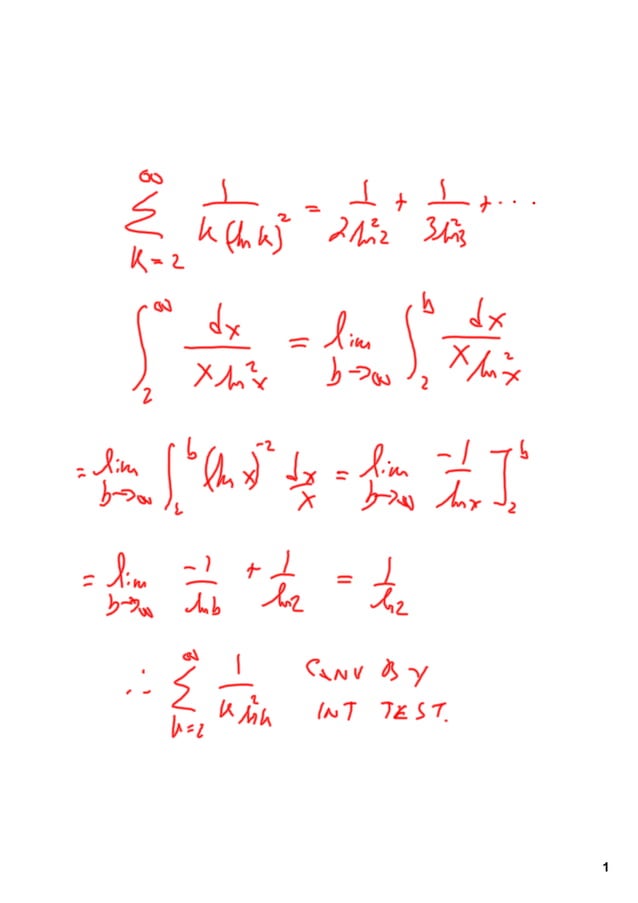 ∞∑k=2 1/(k(ln k)²) = 1/(2ln²2) + 1/(3ln²3) + ⋯
∫₂^∞ dx/(x ln²x) = lim b→∞ ∫₂^b dx/(x ln²x)
= lim b→∞ ∫₂^b (ln x)⁻² dx/x = lim b→∞ -1/ln x ]₂^b
= lim b→∞ -1/ln b + 1/ln2 = 1/ln2
∴ ∞∑k=2 1/(k ln²k) CONV BY
INT TEST.
1